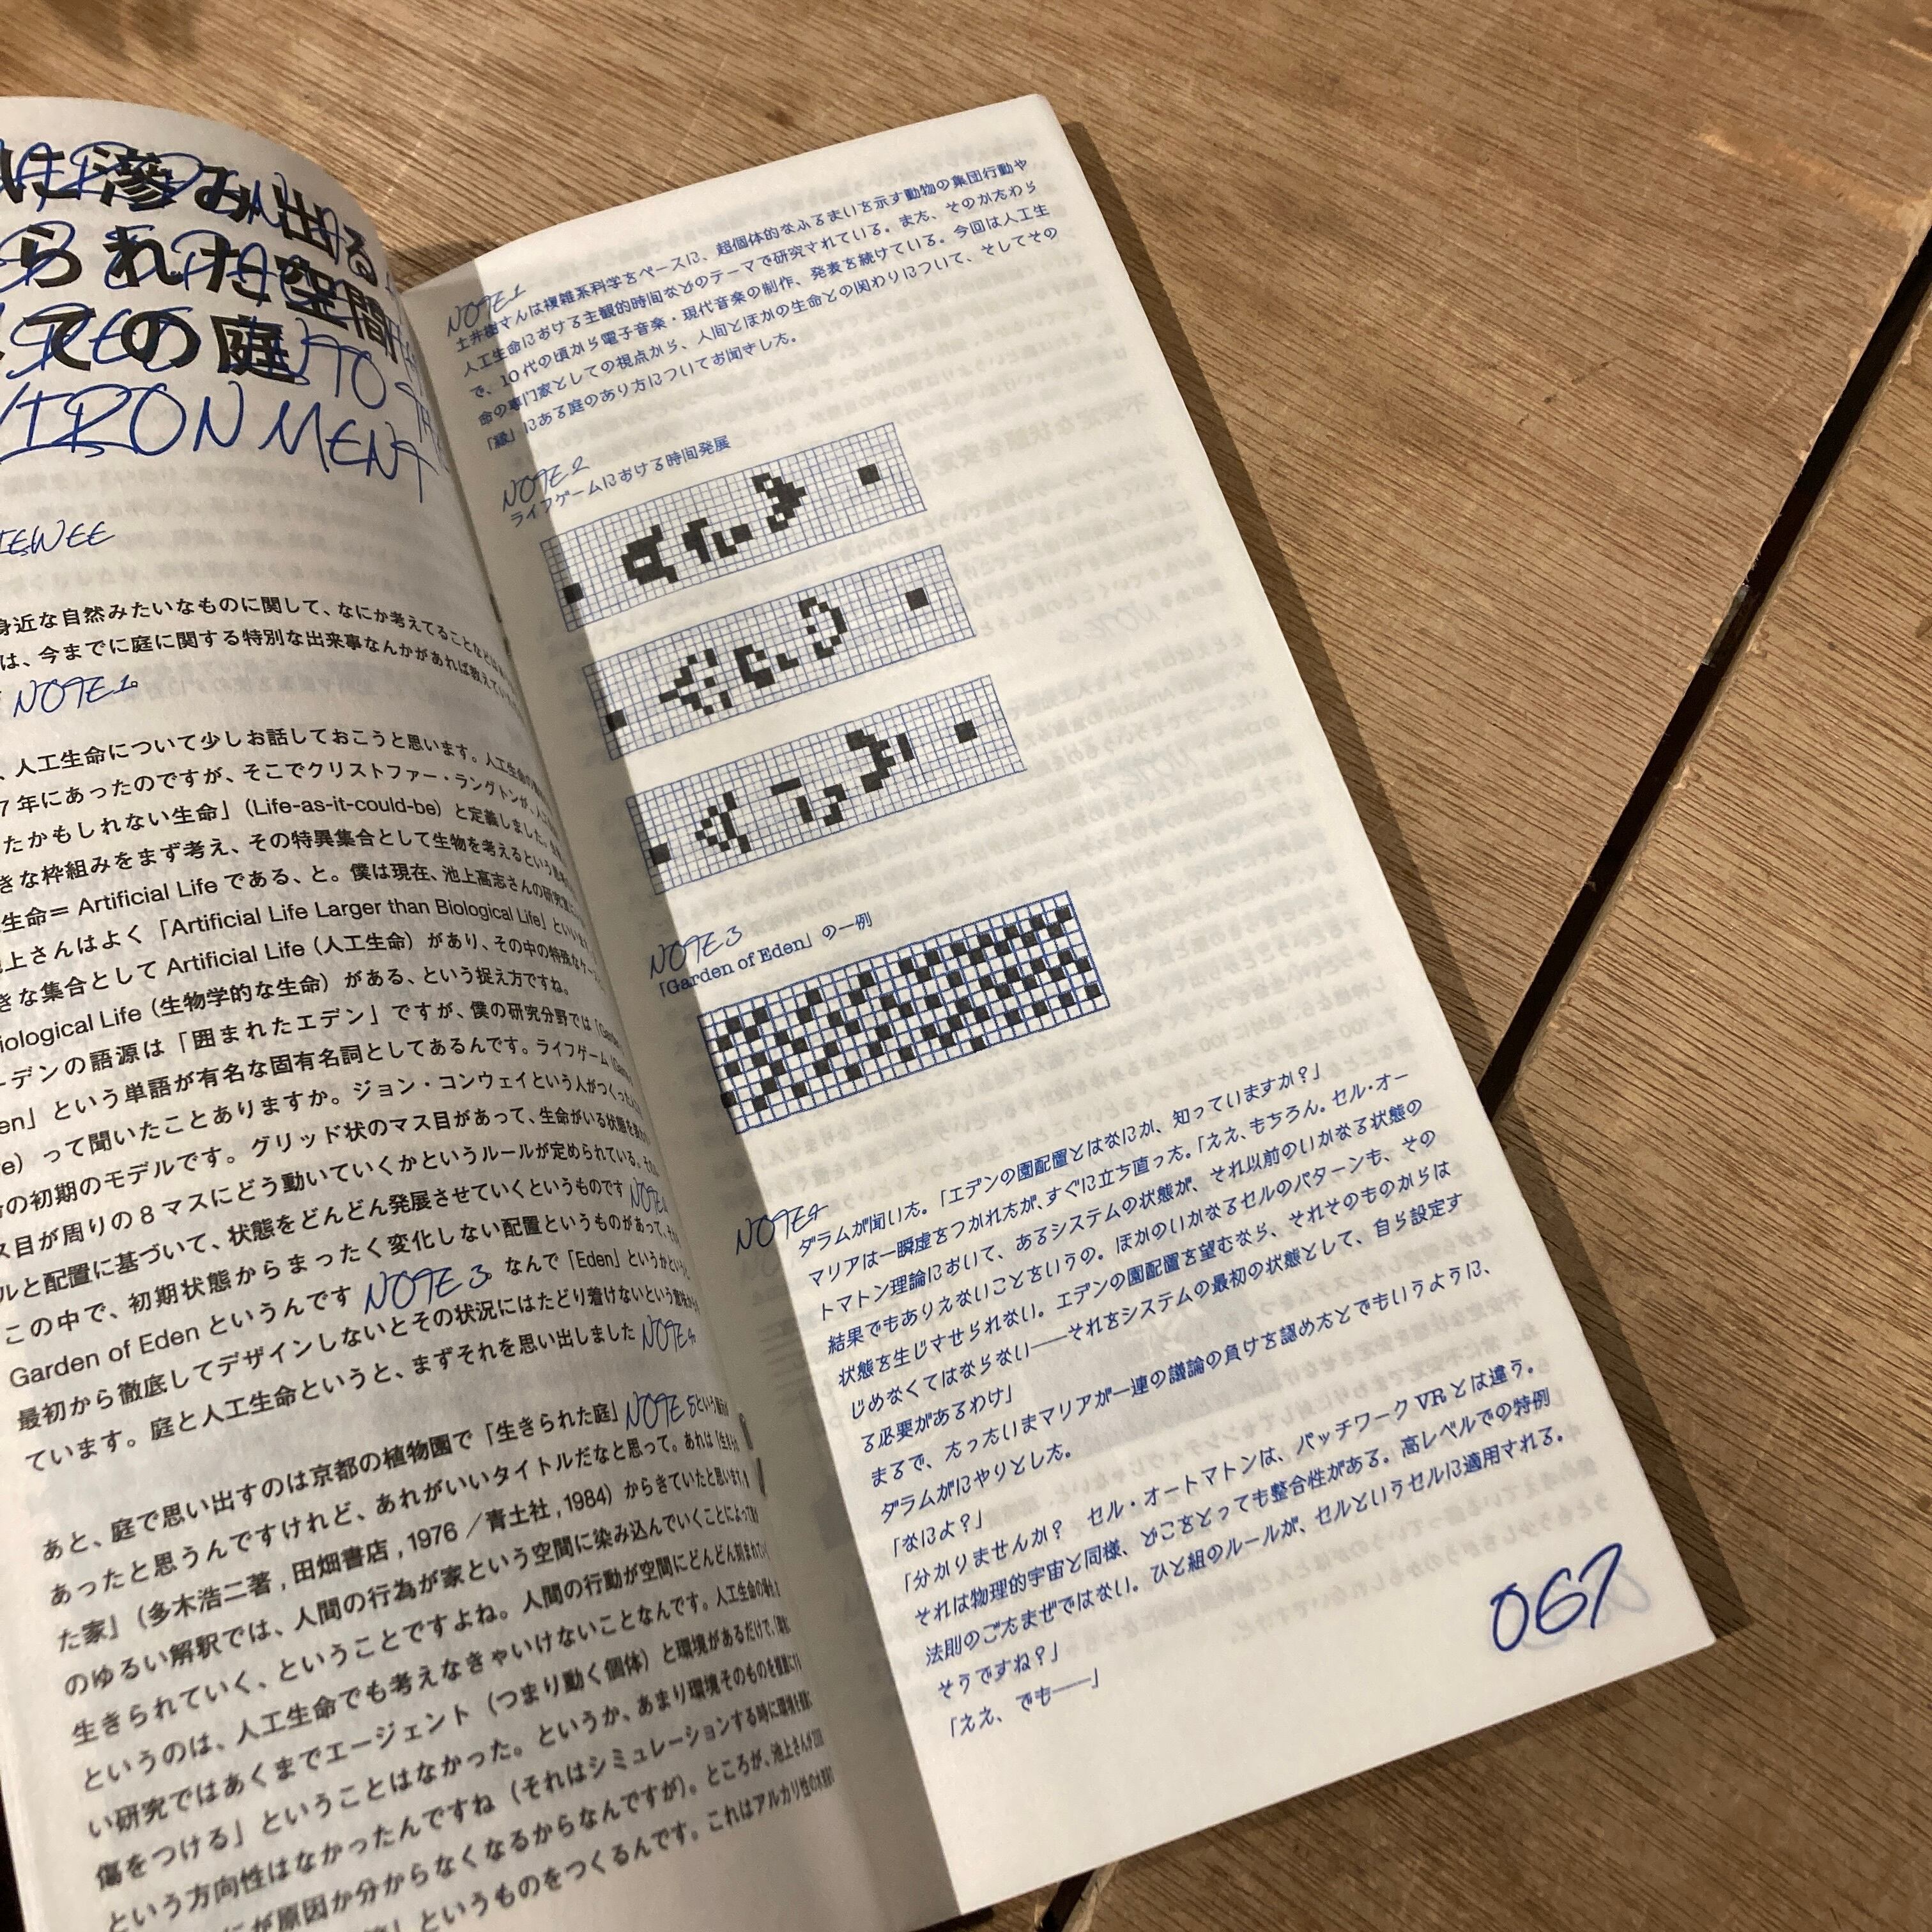 に滲み出る
られた空間
ての庭
VIRONMENT
IEWEE
身近な自然みたいなものに関して、なにか考えてることなど
は、今までに庭に関する特別な出来事なんかがあれば教えて
NOTE 1。
、人工生命について少しお話しておこうと思います。人工生命の
7年にあったのですが、そこでクリストファー・ラングトンが、
たかもしれない生命」(Life-as-it-could-be)と定義しました。
きな枠組みをまず考え、その特異集合として生物を考えるという
生命= Artificial Life である、と。僕は現在、池上高志さんの研究室に
上さんはよく「Artificial Life Larger than Biological Life」といい
きな集合として Artificial Life(人工生命)があり、その中の特殊なケー
iological Life(生物学的な生命)がある、という捉え方ですね。
ーデンの語源は「囲まれたエデン」ですが、僕の研究分野では「Garden
en」という単語が有名な固有名詞としてあるんです。ライフゲーム
e)って聞いたことありますか。ジョン・コンウェイという人がつくった
の初期のモデルです。グリッド状のマス目があって、生命がいる状態を
ス目が周りの8マスにどう動いていくかというルールが定められている。
ルと配置に基づいて、状態をどんどん発展させていくというものです NOTE 2
この中で、初期状態からまったく変化しない配置というものがあって、
Garden of Eden というんです NOTE 3。なんで「Eden」というかという
最初から徹底してデザインしないとその状況にはたどり着けないという意味
ています。庭と人工生命というと、まずそれを思い出しました NOTE 4。
あと、庭で思い出すのは京都の植物園で「生きられた庭」NOTE 5という
あったと思うんですけれど、あれがいいタイトルだなと思って。あれは『生きら
た家』(多木浩二著,田畑書店,1976/青土社,1984)からきていたと思います
のゆるい解釈では、人間の行為が家という空間に染み込んでいくことによって
生きられていく、ということですよね。人間の行動が空間にどんどん刻まれて
というのは、人工生命でも考えなきゃいけないことなんです。人工生命の
い研究ではあくまでエージェント(つまり動く個体)と環境があるだけで、
傷をつける」ということはなかった。というか、あまり環境そのものを
という方向性はなかったんですね(それはシミュレーションする時に環境を
にが原因か分からなくなるからなんですが)。ところが、池上さんが
」というものをつくるんです。これはアルカリ性の
NOTE 1
土井樹さんは複雑系科学をベースに、超個体的なふるまいを示す動物の集団行動や
人工生命における主観的時間などのテーマで研究されている。また、そのかたわら
で、10代の頃から電子音楽・現代音楽の制作、発表を続けている。今回は人工生
命の専門家としての視点から、人間とほかの生命との関わりについて、そしてその
「縁」にある庭のあり方についてお聞きした。
NOTE 2
ライフゲームにおける時間発展
NOTE 3
「Garden of Eden」の一例
NOTE 4
ダラムが聞いた。「エデンの園配置とはなにか、知っていますか?」
マリアは一瞬虚をつかれたが、すぐに立ち直った。「ええ、もちろん。セル・オー
トマトン理論において、あるシステムの状態が、それ以前のいかなる状態の
結果でもありえないことをいうの。ほかのいかなるセルのパターンも、その
状態を生じさせられない。エデンの園配置を望むなら、それそのものからは
じめなくてはならない――それをシステムの最初の状態として、自ら設定す
る必要があるわけ」
まるで、たったいまマリアが一連の議論の負けを認めたとでもいうように、
ダラムがにやりとした。
「なによ?」
「分かりませんか? セル・オートマトンは、パッチワークVRとは違う。
それは物理的宇宙と同様、どこをとっても整合性がある。高レベルでの特例
法則のごたまぜではない。ひと組のルールが、セルというセルに適用される。
そうですね?」
「ええ、でも――」
067